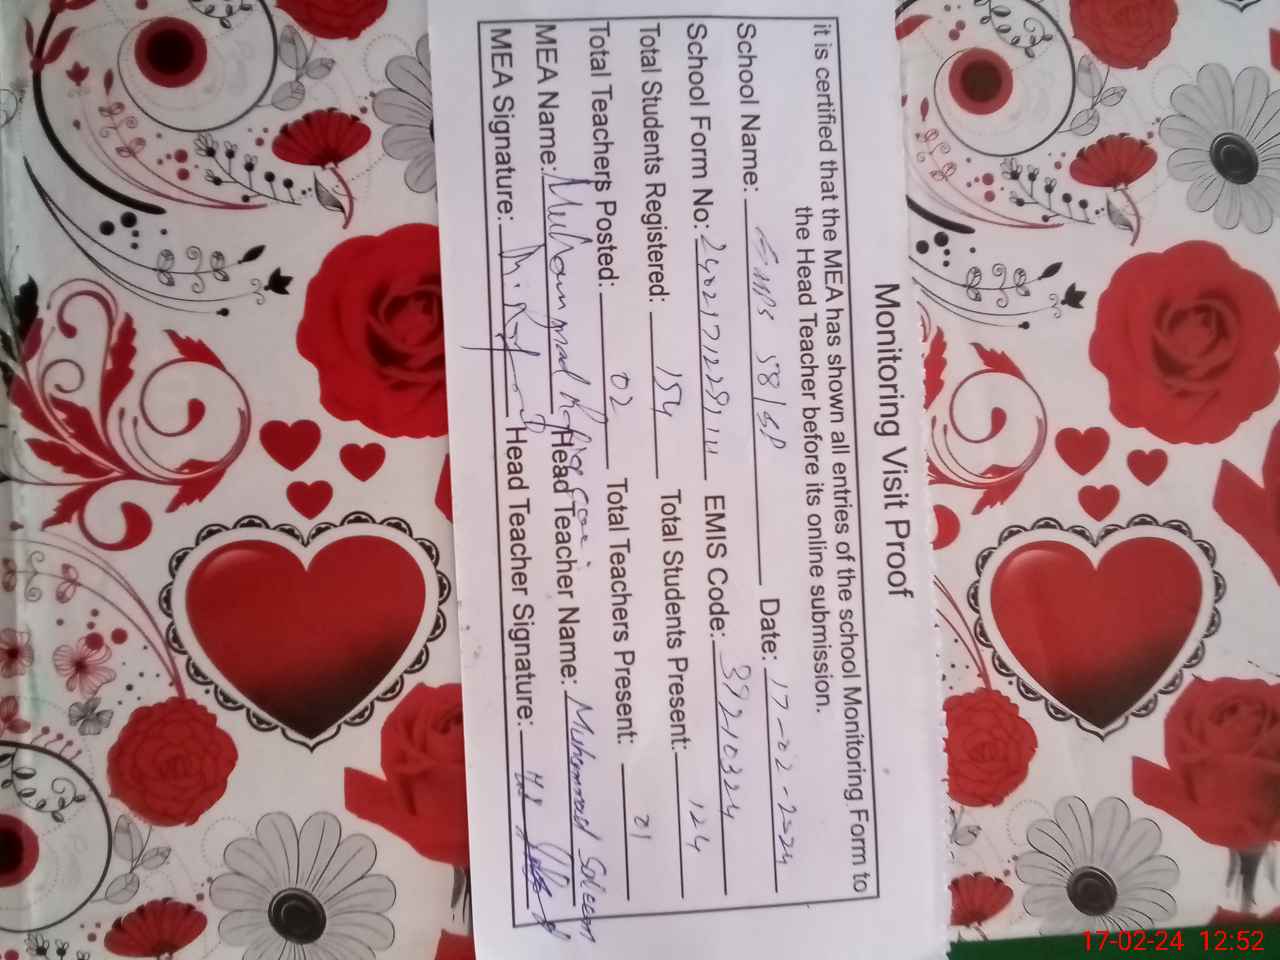 Monitoring Visit Proof
it is certified that the MEA has shown all entries of the school Monitoring Form to
the Head Teacher before its online submission.
School Name: GMPS 58/SP Date: 17-02-2024
School Form No: EMIS Code: 39210324
Total Students Registered: 154 Total Students Present: 124
Total Teachers Posted: 02 Total Teachers Present: 01
MEA Name: Muhammad Head Teacher Name: Muhammad Saleem
MEA Signature: Head Teacher Signature:
17-02-24 12:52